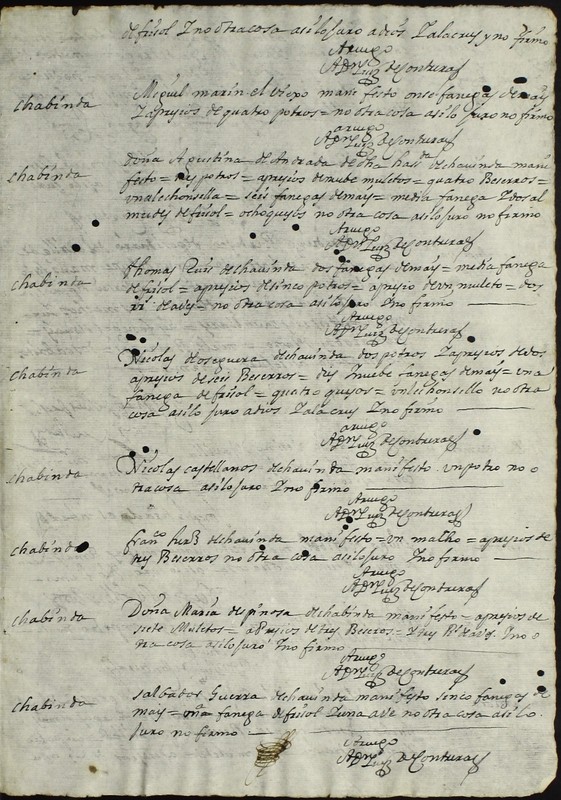 de frisol Y no otra cosa asilo Juro a dios Y ala crus y no firmo
Aruego
Luis de Contreras
chabinda
Miguel marin el Viexo manifesto onse fanegas de mais
Y apresios de quatro potros = no otra cosa asilo Juro no firmo
aruego
Luis de Contreras
chabinda
doña Agustina de Andrada de dha de chavinda mani
festo = tres potros = apresios de nuebe muletos = quatro Beserros =
Vna lechonsilla = seis fanegas de mays = media fanega Y dos al
mudes de frisol = ocho quesos no otra cosa asilo Juro no firmo
Aruego
Luis de Contreras
chabinda
thomas Ruis de chavinda dos fanegas de mays = media fanega
de frisol = apresios de sinco potros = apresio de Vn muleto = dos
de aves = no otra cosa asilo Juro Y no firmo
Aruego
Luis de Contreras
chabinda
Nicolas de oseguera de chavinda dos potros Y apresios de dos
apresios de seis Beserros = dies Y nuebe fanegas de mays = Vna
fanega de frisol = quatro quesos = Vn lechonsillo no otra
cosa asilo Juro a dios Y ala Crus Y no firmo
aruego
Luis de Contreras
chabinda
Nicolas castellanos de chavinda manifesto Vn potro no o
tra cosa asilo Juro Y no firmo
Aruego
Luis de Contreras
chabinda
franco de chavinda manifesto = Vn macho = apresios de
tres Beserros no otra cosa asilo Juro Y no firmo
Aruego
Luis de Contreras
chabinda
Doña Maria despinosa de chabinda manifesto = apresios de
siete Muletos = apresios de tres Beseros = Y tres de aves Y no o
tra cosa asilo Juro Y no firmo
Aruego
Luis de Contreras
chabinda
salbador Guerra de chavinda manifesto sinco fanegas de
mays = Vna fanega de frisol Y una ave no otra cosa asilo
Juro no firmo
Aruego
Luis de Contreras